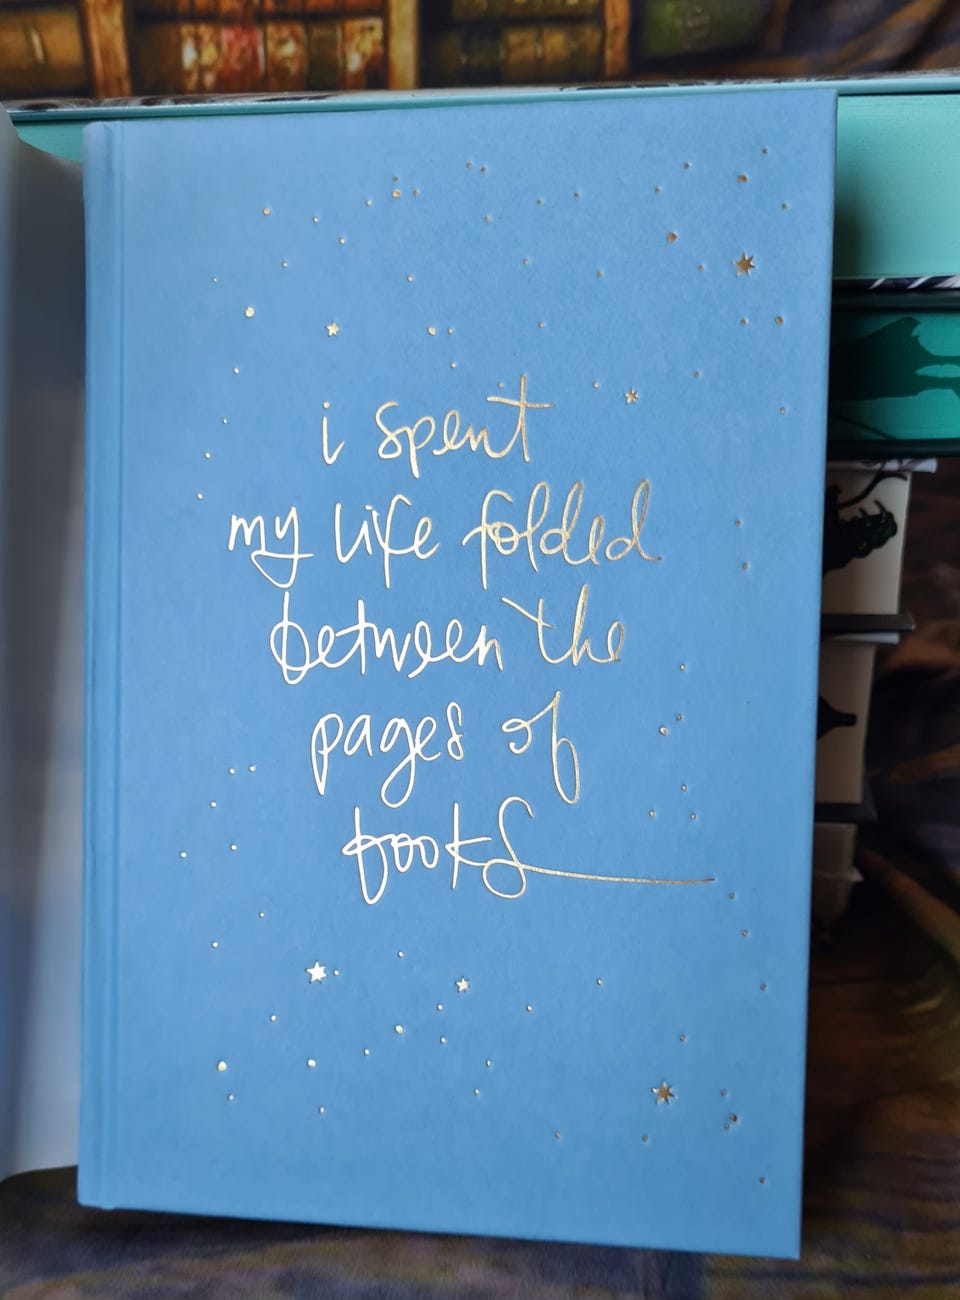 i spent
my life folded
between the
pages of
books